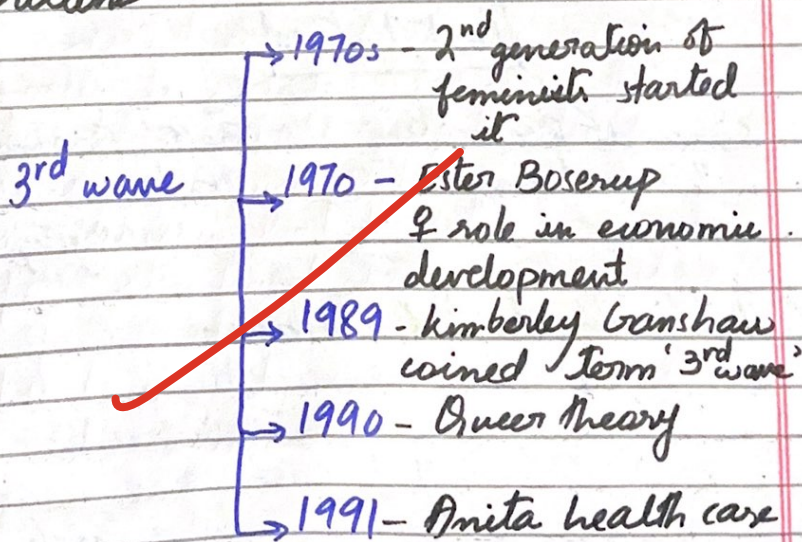 1970s - 2nd generation of
feminists started
it
3rd wave
1970 - Ester Boserup
♀ role in economic
development
1989 - Kimberley Cranshaw
coined term '3rd wave'
1990 - Queer theory
1991 - Anita health case